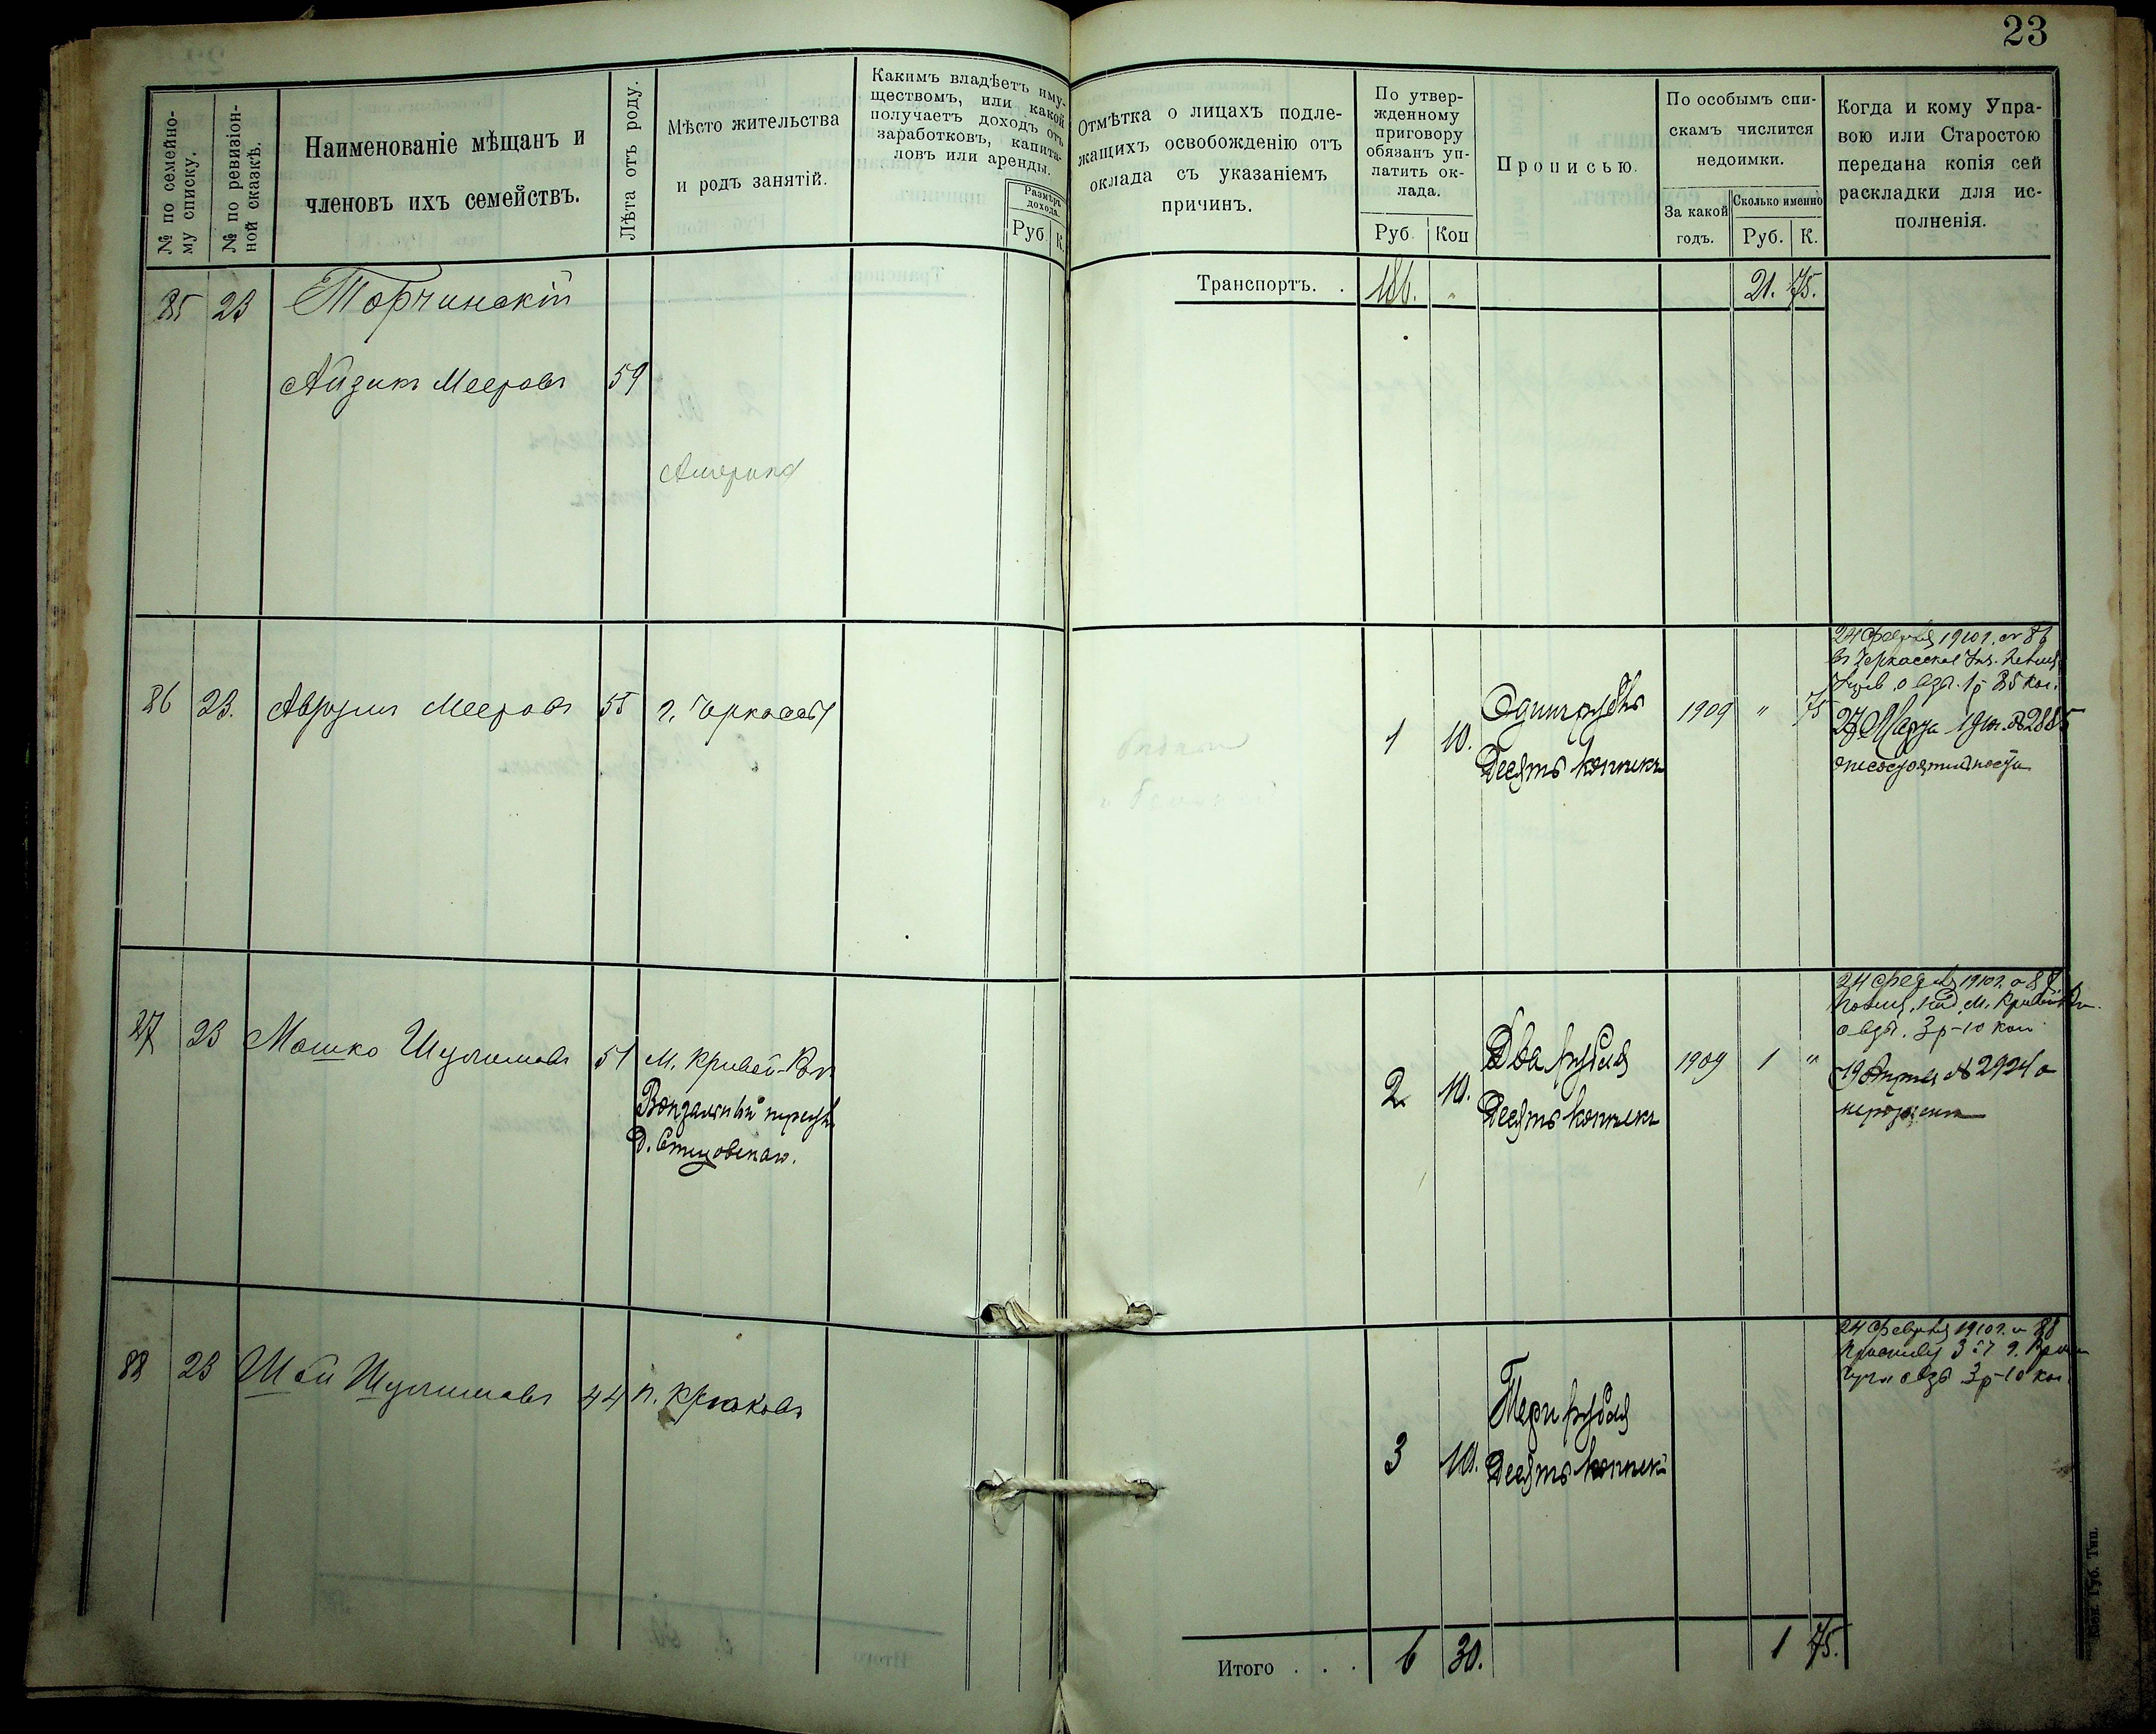 23
№ по семейно-
му списку.
№ по ревизіон-
ной сказкѣ.
Наименованіе мѣщанъ и
членовъ ихъ семействъ.
Лѣта отъ роду.
Мѣсто жительства
и родъ занятій.
Какимъ владѣетъ иму-
ществомъ, или какой
получаетъ доходъ отъ
заработковъ, капита-
ловъ или аренды.
Размѣръ
дохода.
Руб. К.
Отмѣтка о лицахъ подле-
жащихъ освобожденію отъ
оклада съ указаніемъ
причинъ.
По утвер-
жденному
приговору
обязанъ уп-
латить ок-
лада.
Руб. Коп
Прописью.
По особымъ спи-
скамъ числится
недоимки.
За какой
годъ.
Сколько именно
Руб. К.
Когда и кому Упра-
вою или Старостою
передана копія сей
раскладки для ис-
полненія.
Транспортъ. . 186. " 21. 75.
85 23 Торчинскій
Айзикъ Мееровъ 59
Америка
86 23. Аврумъ Мееровъ 55 г. Черкассы
1 10. Одинъ рубль
Десять копѣекъ
1909 " 75
24 Февраля 1910 г. № 86
въ Черкасское
1 р 85 коп.
27 Марта 1910 г. № 2885
о несостоятельности
87 23 Мошко Шулимовъ 51 м. Кривой-Рогъ
Вокзальный
2 10. Два рубля
Десять копѣекъ
1909 1 "
24 Февраля 1910 г. № 87
м. Кривой Рогъ
3 р-10 коп
19 Апрѣля № 2924 о
88 23 Шулимовъ 44 п. Крюковъ
3 10. Три рубля
Десять копѣекъ
24 Февраля 1910 г. № 88
3 р-10 коп
Итого . . . 6 30. 1 75.
Губ. Тип.